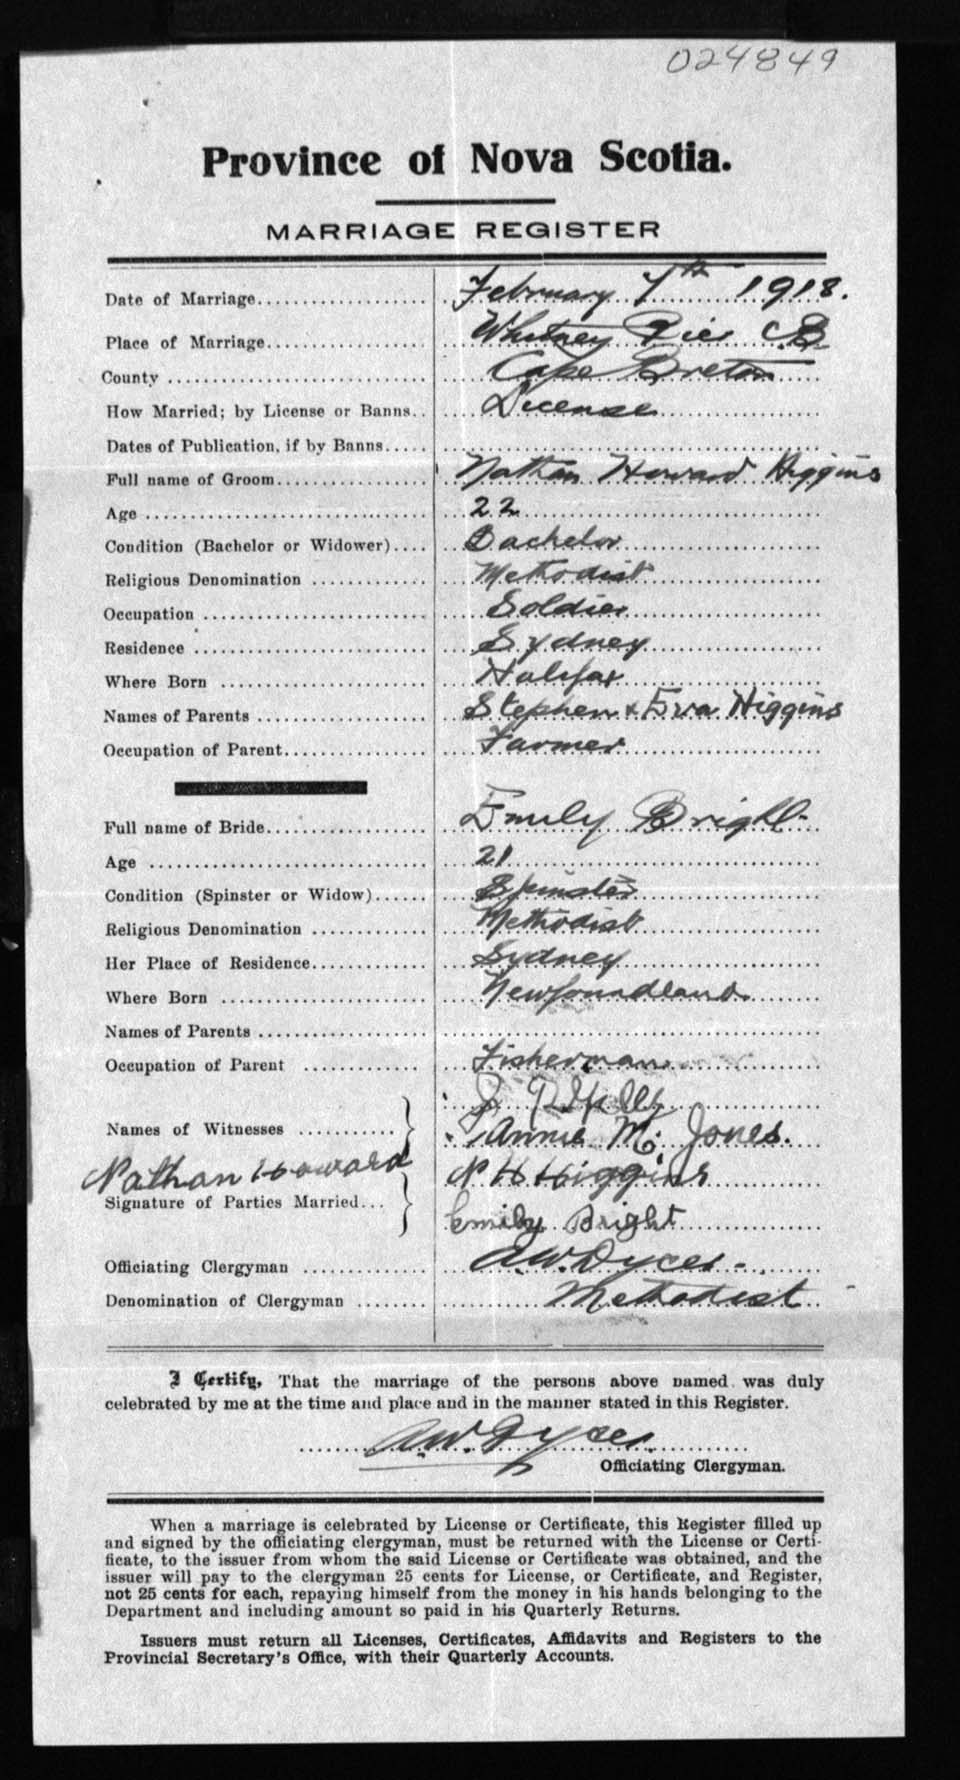 024849
Province of Nova Scotia.
MARRIAGE REGISTER
Date of Marriage February 7th 1918.
Place of Marriage Whitney Pier C.B.
County Cape Breton
How Married; by License or Banns License
Dates of Publication, if by Banns
Full name of Groom Nathan Howard Higgins
Age 22
Condition (Bachelor or Widower) Bachelor
Religious Denomination Methodist
Occupation Soldier
Residence Sydney
Where Born Halifax
Names of Parents Stephen & Eva Higgins
Occupation of Parent Farmer
Full name of Bride Emily Bright
Age 21
Condition (Spinster or Widow) Spinster
Religious Denomination Methodist
Her Place of Residence Sydney
Where Born Newfoundland
Names of Parents
Occupation of Parent Fisherman
J
Names of Witnesses Annie M. Jones.
Nathan Howard N H Higgins
Signature of Parties Married
Emily Bright
Officiating Clergyman A.W. Dyces
Denomination of Clergyman Methodist
I Certify, That the marriage of the persons above named was duly
celebrated by me at the time and place and in the manner stated in this Register.
A.W. Dyces
Officiating Clergyman.
When a marriage is celebrated by License or Certificate, this Register filled up
and signed by the officiating clergyman, must be returned with the License or Certi-
ficate, to the issuer from whom the said License or Certificate was obtained, and the
issuer will pay to the clergyman 25 cents for License, or Certificate, and Register,
not 25 cents for each, repaying himself from the money in his hands belonging to the
Department and including amount so paid in his Quarterly Returns.
Issuers must return all Licenses, Certificates, Affidavits and Registers to the
Provincial Secretary's Office, with their Quarterly Accounts.